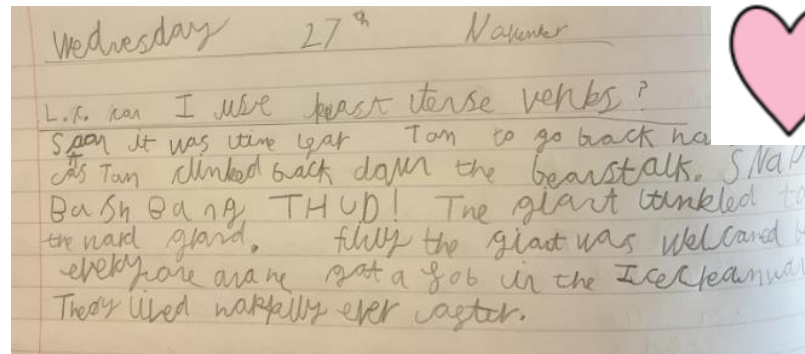 Wednesday 27th November
L.I. can I use past tense verbs?
Soon it was time for Tom to go back
as Tom climbed back down the beanstalk. SNAP
Bash Bang THUD! The giant tumbled
the hard ground. the giant was welcomed
everyone got a job in the Icecream
They lived happily ever after.